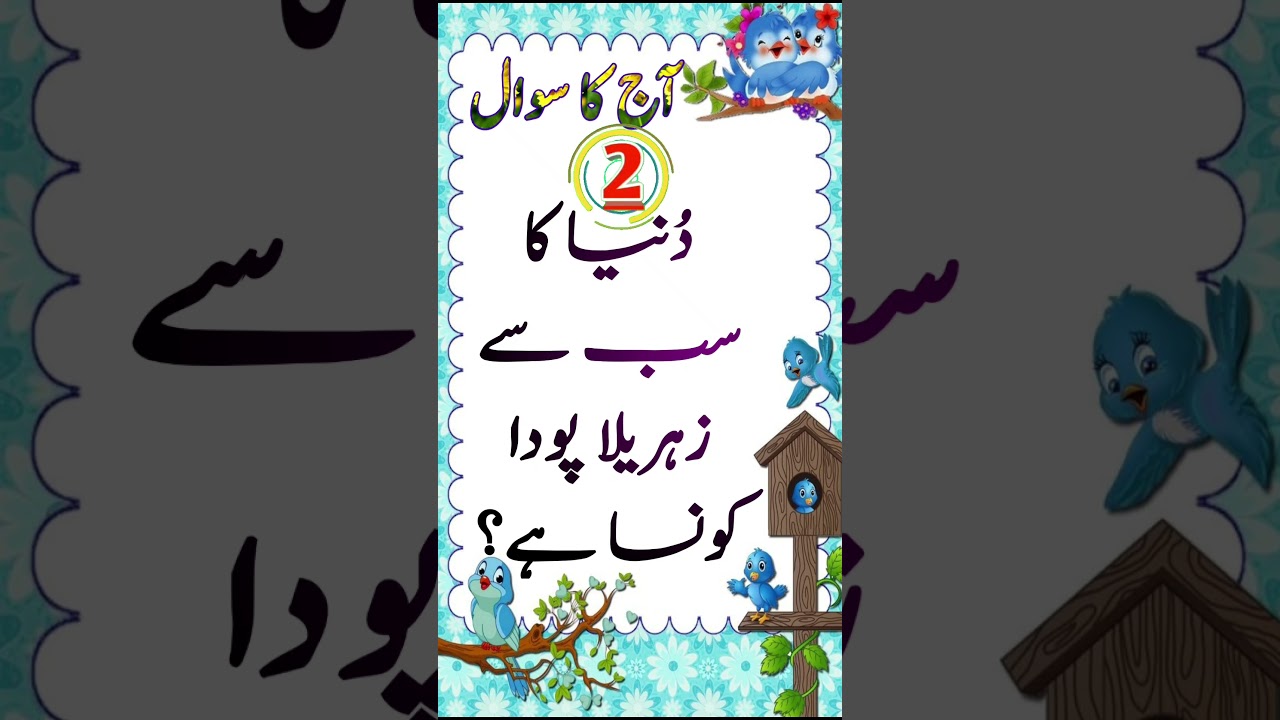 آج کا سوال
2
دُنیا کا
سب سے
زہریلا پودا
کونسا ہے؟